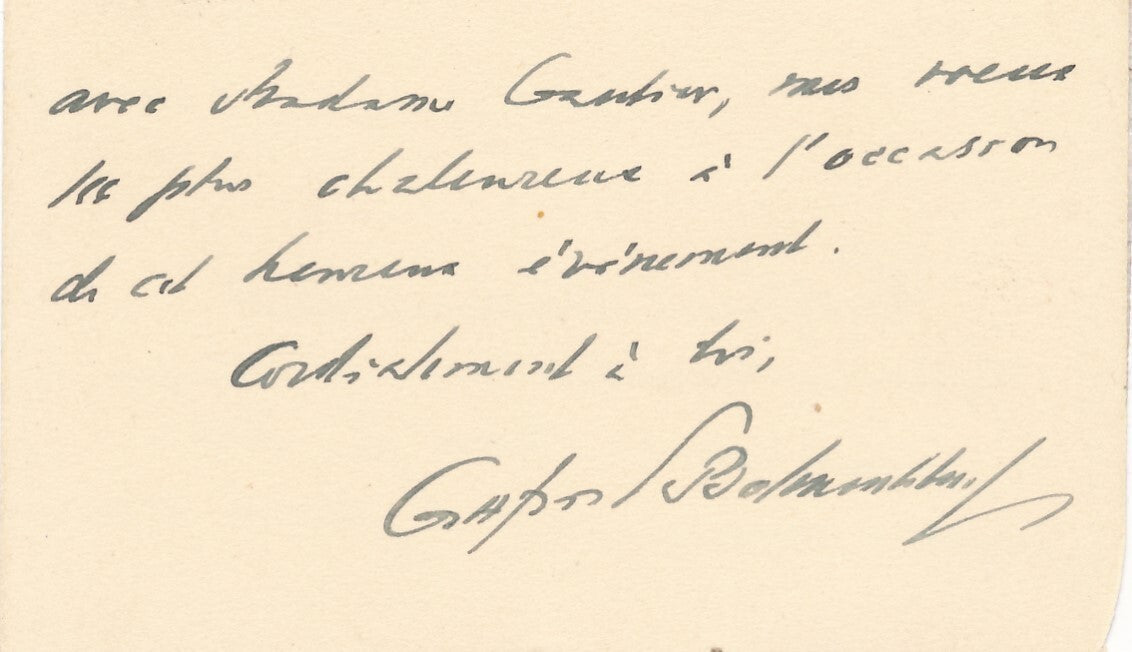 avec Madame Gautier, mes voeux
les plus chaleureux à l'occasion
de cet heureux événement.
Cordialement à toi,